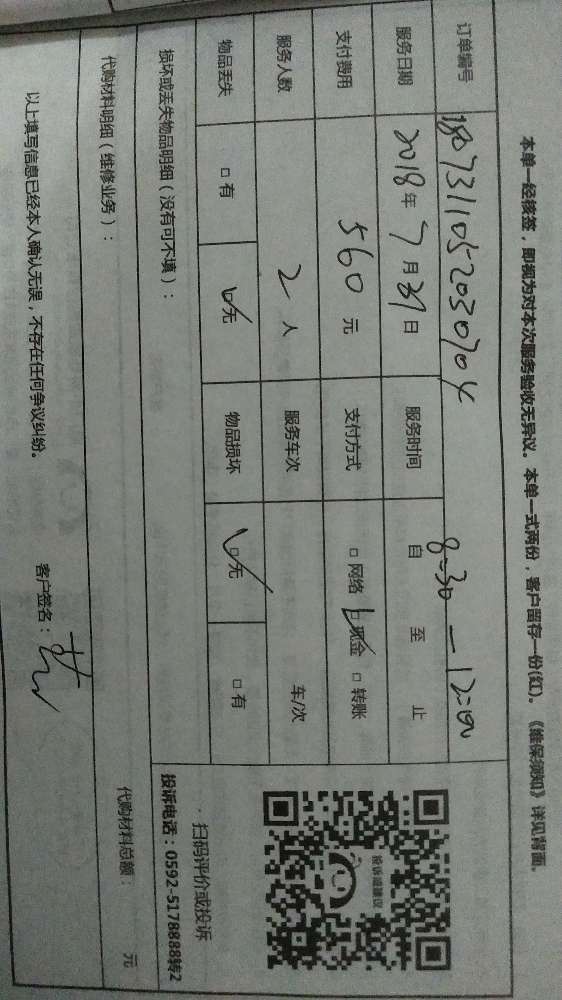 本单一经核签，即视为对本次服务验收无异议。本单一式两份，客户留存一份(红)。《维保须知》详见背面。
订单编号 1807311052030704
服务日期 2018年7月31日 服务时间 自 8:30 至 — 12:00 止
支付费用 560元 支付方式 □网络 ☑现金 □转账
服务人数 2人 服务车次 车/次
物品丢失 □有 ☑无 物品损坏 ☑无 □有
投诉或建议
· 扫码评价或投诉
投诉电话：0592-5178888转2
损坏或丢失物品明细（没有可不填）：
代购材料明细（维修业务）： 代购材料总额： 元
以上填写信息已经本人确认无误，不存在任何争议纠纷。 客户签名：